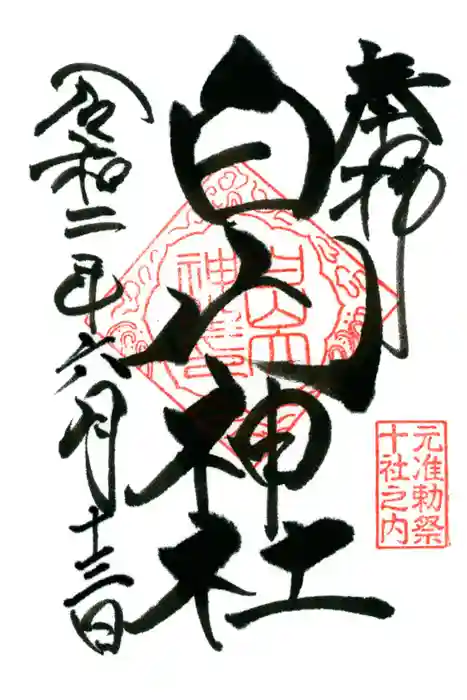 奉拝
白山神社
元准勅祭
十社之内
令和二年六月十三日